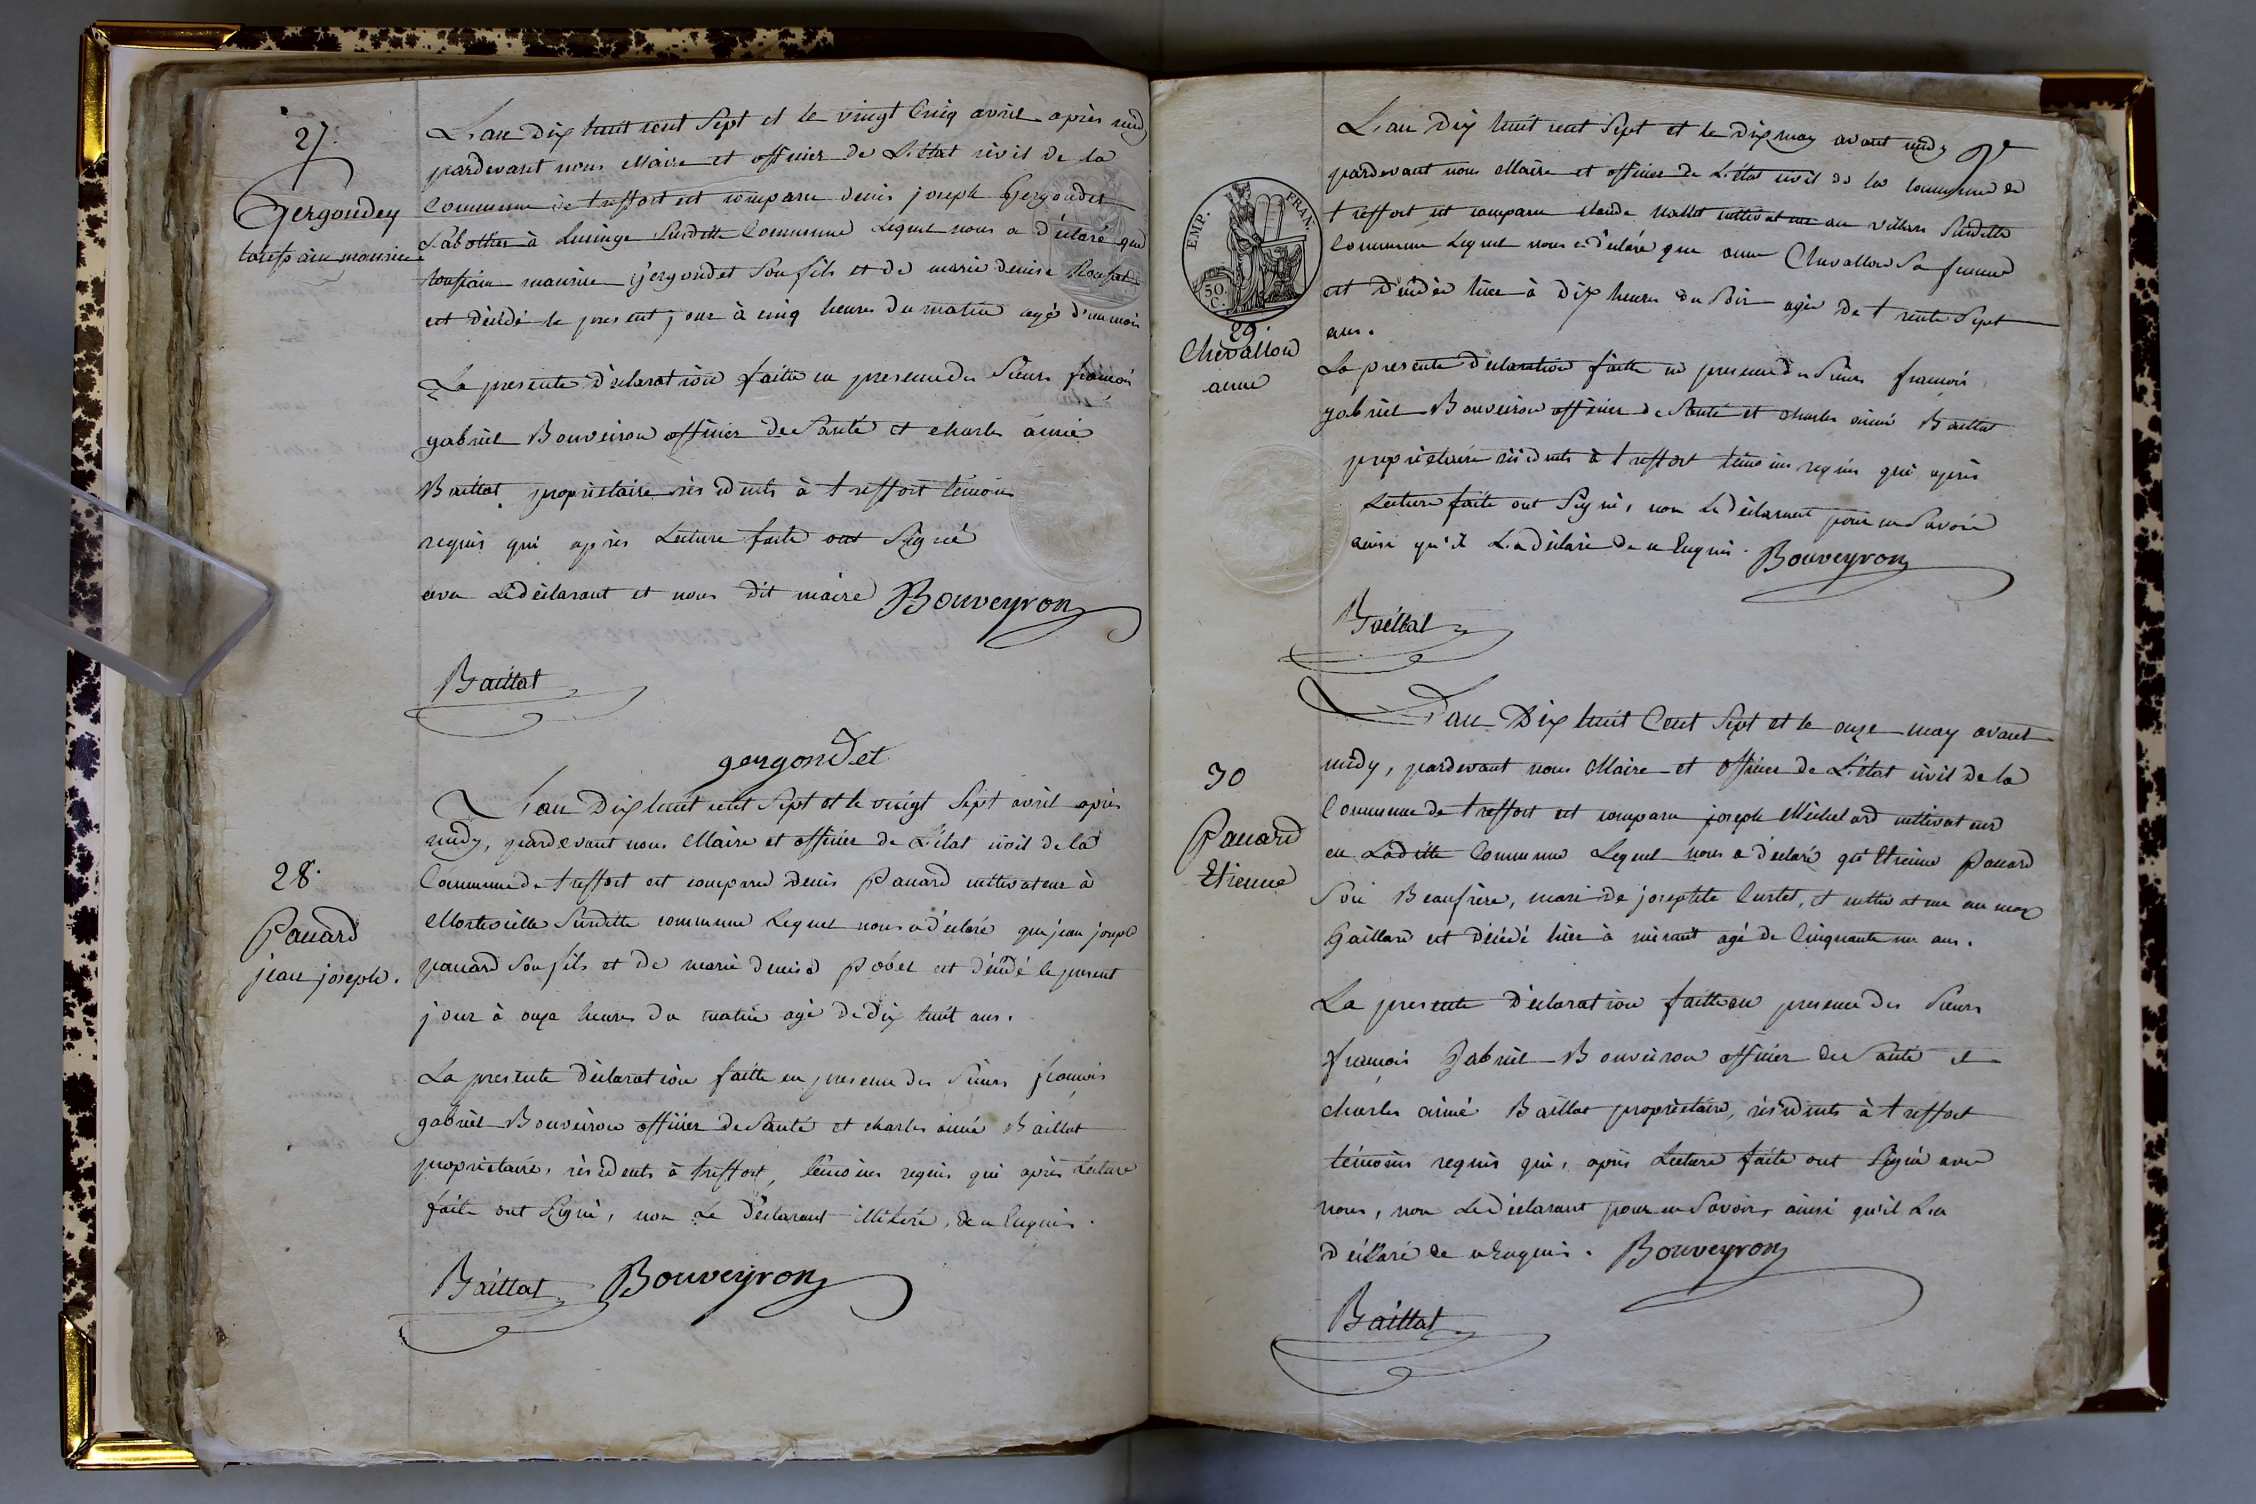 27.
Gergondey
toussain maurice
L'an Dix huit cent Sept et le vingt Cinq avril après midy
pardevant nous Maire et officier de L'état civil de la
Commune de treffort est comparu denis joseph Gergondet
Sabottier à Lucinge Surditte Commune Lequel nous a déclaré que
toussain maurice gergondet Son fils et de marie denise
est décédé le present jour à cinq heures du matin agé d'un mois
La presente déclaration faitte en presence des Sieurs francois
gabriel Bouveiron officier de Santé et charles aimé
Baillat propriétaire résidents à treffort témoins
requis qui après Lecture faite ont Signé
avec Le déclarant et nous dit maire Bouveyron
Baillat
gergondet
28.
Panard
jean joseph.
L'an Dix huit cent Sept et le vingt Sept avril après
midy, pardevant nous Maire et officier de L'état civil de la
Commune de treffort est comparu Denis Panard cultivateur à
Surditte commune Lequel nous a déclaré que jean joseph
panard Son fils et de marie denise est décédé le present
jour à onze heures du matin agé de Dix huit ans.
La presente déclaration faitte en presence des Sieurs francois
gabriel Bouveiron officier de Santé et charles aimé Baillat
propriétaire, résidents à treffort, témoins requis qui après Lecture
faite ont Signé, non Le Déclarant illiteré, de ce Enquis.
Baillat Bouveyron
EMP. FRAN.
50. C.
29.
Chevallon
anne
L'an Dix huit cent Sept et le Dix may avant midy
pardevant nous Maire et officier de L'état civil de la commune de
treffort est comparu claude cultivateur au villars Surditte
Commune Lequel nous a déclaré que anne Chevallon Sa femme
est Décédée hier à Dix heures du Soir agée de trente Sept
ans.
La presente déclaration faitte en presence des Sieurs francois
gabriel Bouveiron officier de Santé et charles aimé Baillat
propriétaire résidents à treffort témoins requis qui après
Lecture faite ont Signé, non Le déclarant pour ne Savoir
ainsi qu'il L'a déclaré de ce Enquis. Bouveyron
Baillat
30
Panard
Etienne
L'an Dix huit Cent Sept et le onze may avant
midy, pardevant nous Maire et officier de L'état civil de la
Commune de treffort est comparu joseph Michelard cultivateur
en Laditte Commune Lequel nous a déclaré qu'Etienne Panard
Son Beaufrère, mari de josephte Curtet, et cultivateur au max
Gaillard est Décédé hier à minuit agé de Cinquante un ans.
La presente Déclaration faitte en presence des Sieurs
francois Gabriel Bouveiron officier de Santé et
charles aimé Baillat propriétaire, résidents à treffort
témoins requis qui, après Lecture faite ont Signé avec
nous, non Le Déclarant pour ne Savoir, ainsi qu'il L'a
déclaré de ce Enquis. Bouveyron
Baillat